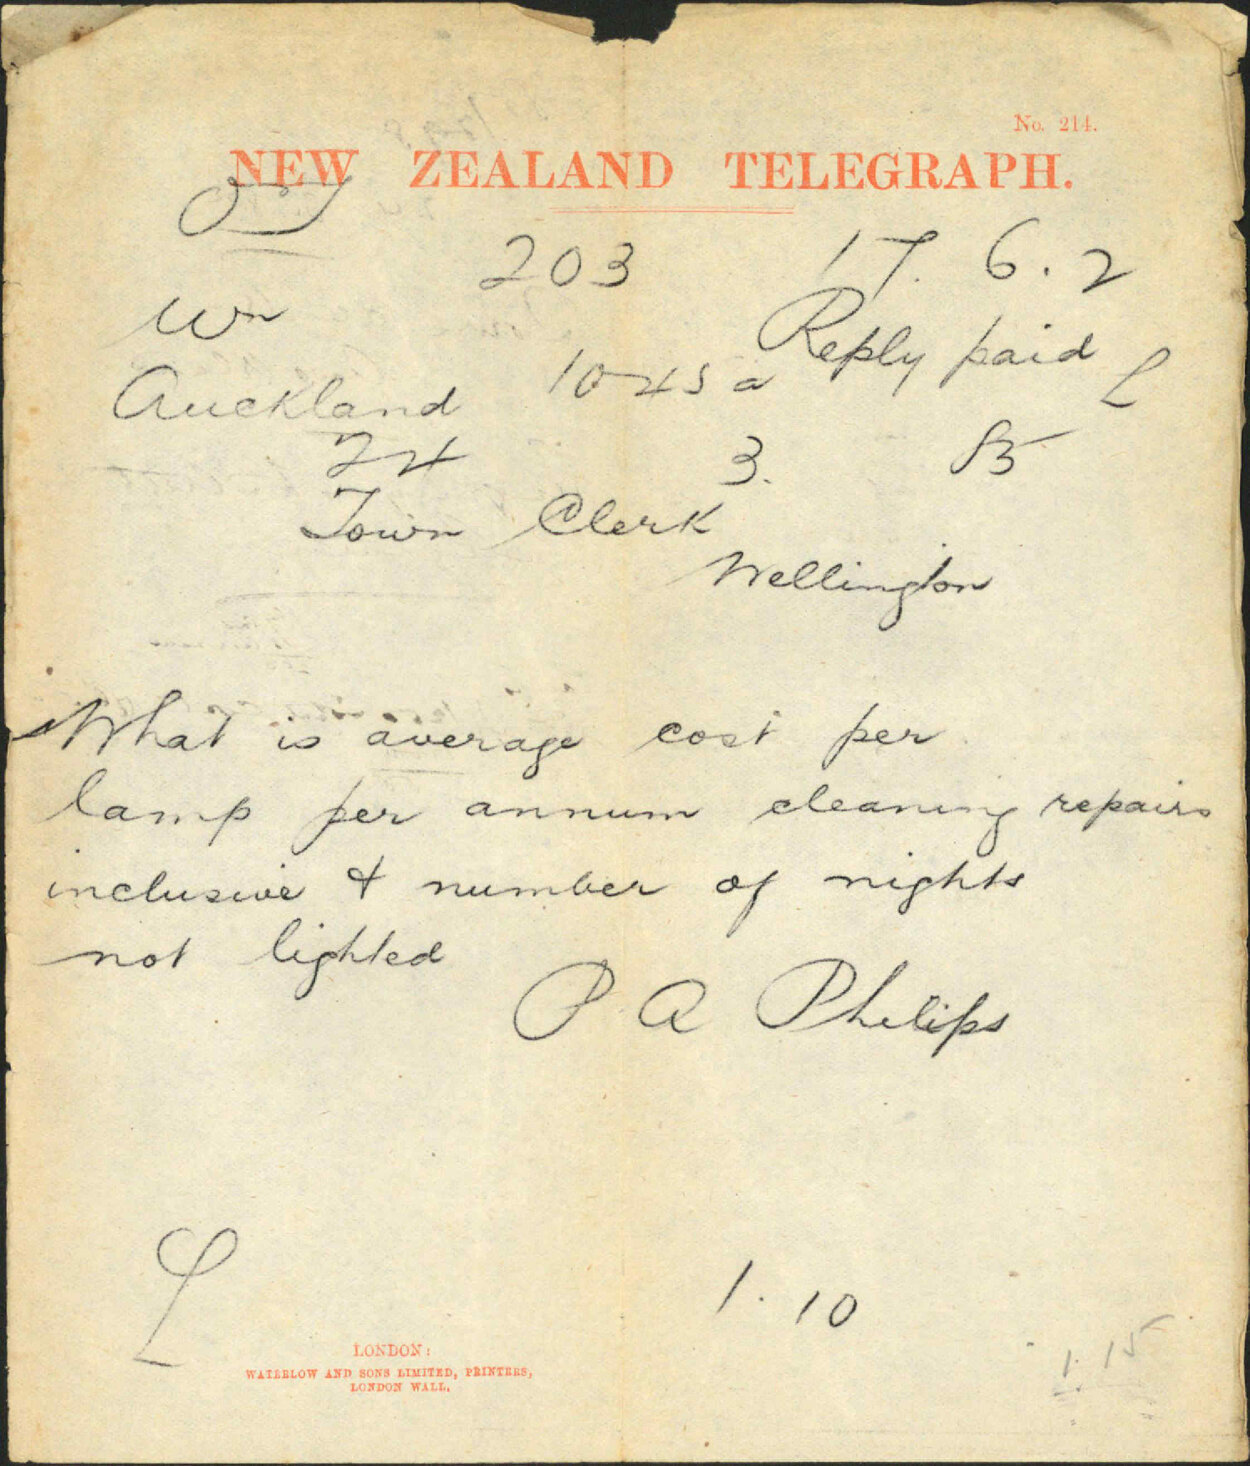 No. 214.
NEW ZEALAND TELEGRAPH.
203 17. 6. 2
Wn
Reply paid
Auckland 1045 a L
24 3.
Town Clerk
Wellington
What is average cost per
lamp per annum cleaning repairs
inclusive & number of nights
not lighted
P A Philips
L
1. 10
1. 15
LONDON:
WATERLOW AND SONS LIMITED, PRINTERS,
LONDON WALL.